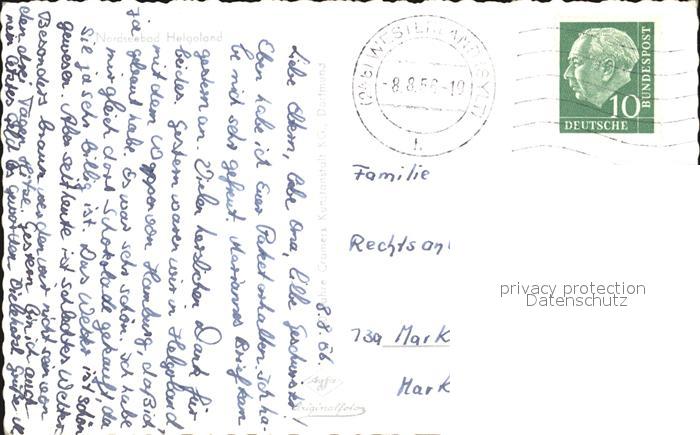 Nordseebad Helgoland
8.8.56.
Liebe Eltern, liebe Oma, liebe Geschwister!
Eben habe ich Euer Paket erhalten. Ich ha-
be mich sehr gefreut. Mariannes Brief kam
gestern an. Vielen herzlichen Dank für
beides. Gestern waren wir in Helgoland
mit dem Wappen von Hamburg, daß ich
ja gebaut habe. Es war sehr schön. Ich habe
mir gleich dort Schokolade gekauft, da
sie ja sehr billig ist. Das Wetter ist schön
gewesen. Aber seit heute ist schlechtes Wetter.
Besonders braun werden war nicht sein von
den drei Tagen Hitze. Gestern bin ich auch
Grüße
Cramers Kunstanstalt KG, Dortmund
Originalfoto
(24b) WESTERLAND (SYLT)
-8.8.56-10
h
10
DEUTSCHE
BUNDESPOST
Familie
Rechtsan
13a Mark
Mark
privacy protection
Datenschutz